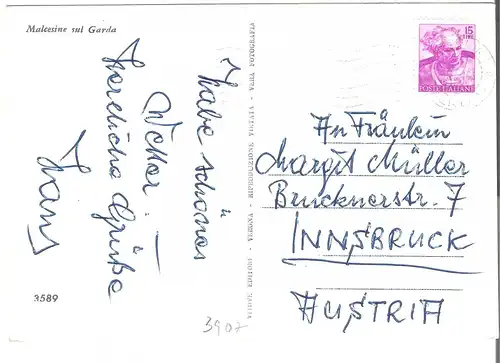 Malcesine sul Garda
Habe schönes
Wetter
Herzliche Grüße
Franz
3589
3907
VERONA - RIPRODUZIONE VIETATA - VERA FOTOGRAFIA
15
LIRE
POSTE ITALIANE
An Fräulein
Margit Müller
Brucknerstr. 7
INNSBRUCK
AUSTRIA